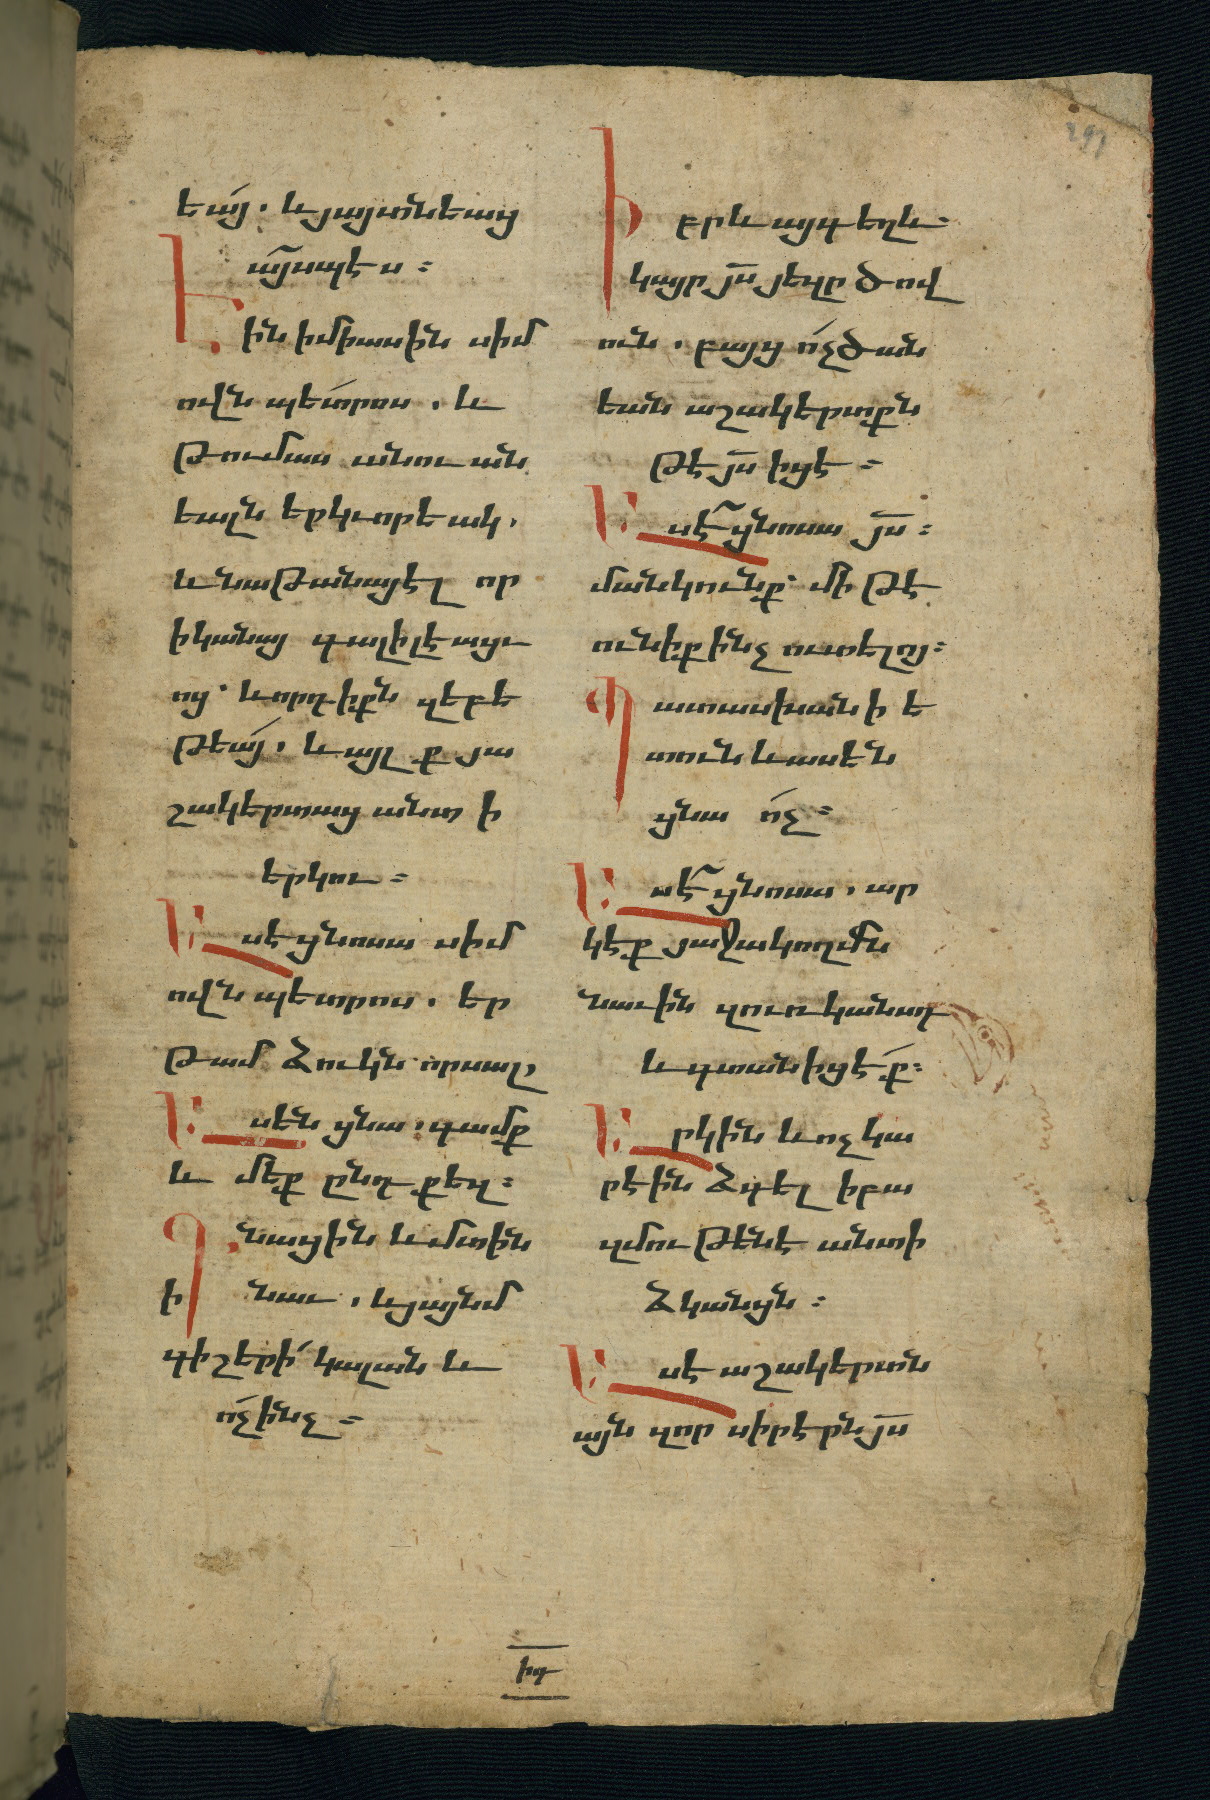 297
եա՛յ. և յայտնեաց
այսպէս :
Էին իմիասին սիմ
ովն պետրոս . և
թումաս անուան
եալն երկւորեակ,
և նաթանայէլ որ
ի կանայ գալիլէայւ
ոց՛ և որդիքն զեբե
թեա՛յ. և այլ ք յա
շակերտաց անտ ի
երկու :
Ասէ ցնոսա սիմ
ովն պետրոս . եր
թամ ձուկն որսալ,
Ասեն ցնա . գամք
և մեք ընդ քեզ :
Գնացին և մտին
ի նաւ . և յայնմ
գիշերի՛ կալան և
ո՛չինչ :
Իբրև այգ եղև.
կայր յ̅ս յեզր ծով
ուն . բայց ո՛չ ծան
եան աշակերտքն
թէ յ̅ս իցէ :
Ասէ՜ ցնոսա յ̅ս :
մանկունք՝ մի թէ
ունիք ինչ ուտելոյ :
Պատասխանի ե
տուն և ասեն
ցնա ո՛չ :
Ասէ՜ ցնոսա . ար
կէք յաջակողմն
նաւին զուռկանսդ
և գտանիցէ՛ք :
Արկին և ոչ կա
րէին ձգել ի բա
զմութենէ անտի
ձկանցն :
Ասէ աշակերտն
այն զոր սիրէրն յ̅ս
իգ